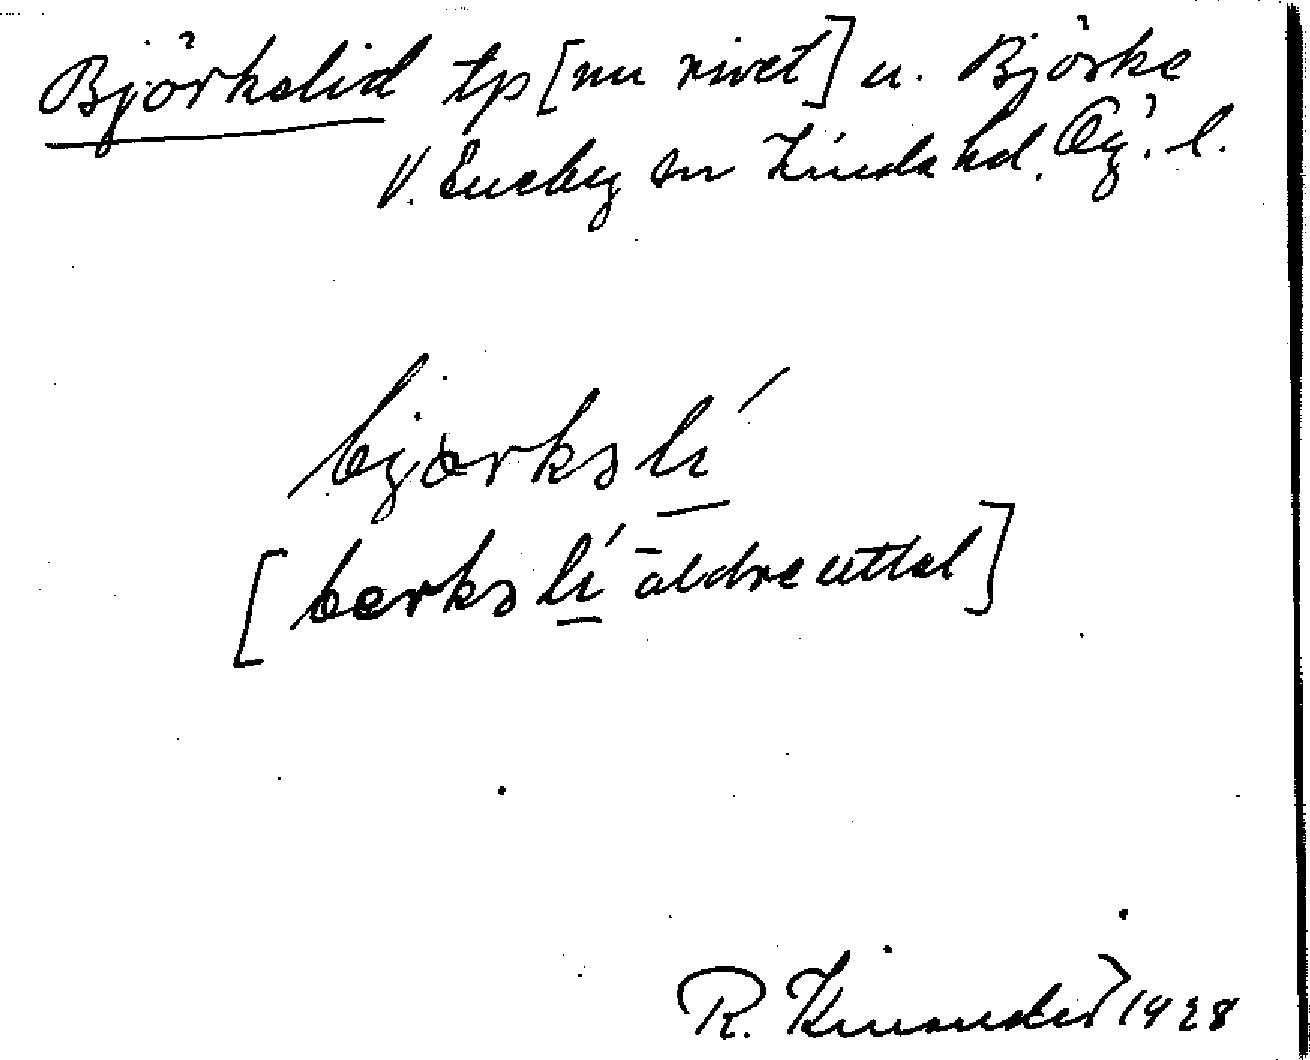 Björkslid tp [nu rivet] u. Björke
V. Eneby sn Kinda hd. Ög. l.
bjørkslí
[bærkslí äldre uttal]
R. Kinander 1928